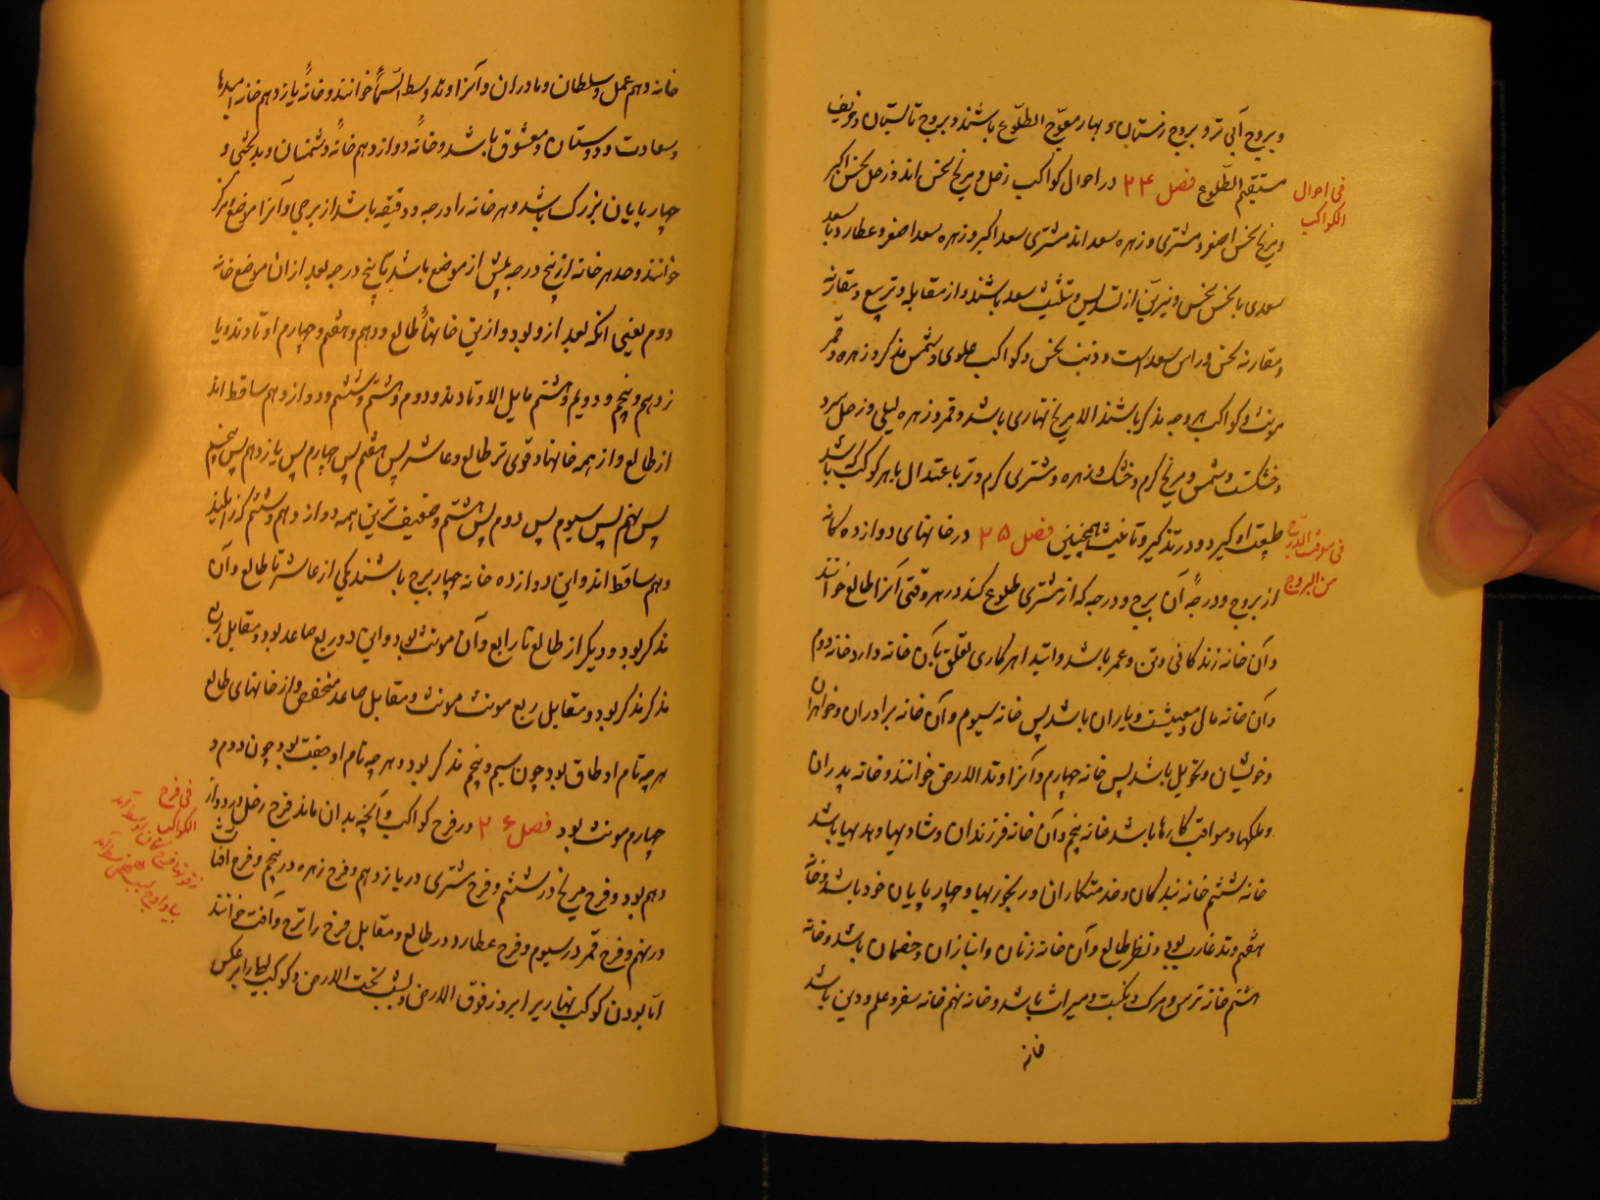 و بروج آبی تر و بروج زمستان و بهار معوّج الطّلوع باشند و بروج تابستان و خریف
مستقیم الطّلوع فصل ۲۴ در احوال کواکب زحل و مریخ نحس اند و زحل نحس اکبر
فی احوال
الکواکب
و مریخ نحس اصغر و مشتری و زهره سعد اند مشتری سعد اکبر و زهره سعد اصغر و عطارد با سعد
سعدی با نحس نحس و نیرین از تسدیس و تثلیث سعد باشند و از مقابله و تربیع و مقارنه
و مقارنه نحس و راس سعد است و ذنب نحس و کواکب علوی و شمس مذکر و زهره و قمر
مونث و کواکب بهر وجه مذکر باشند الا مریخ نهاری باشد و قمر و زهره لیلی و زحل سرد
و خشکست و شمس و مریخ گرم و خشک و زهره و مشتری گرم و تر باعتدال با هر کوکب که باشد
طبیعت او گیرد و در تذکیر و تانیث همچنین فصل ۲۵ در خانهای دوازده گانه
من البروج
از بروج و درجهٔ آن برج و درجه که از مشرق طلوع کند در هر وقتی آنرا طالع خوانند
و آن خانه زندگانی و تن و عمر باشد و ابتدا هر کاری تعلق بآن خانه دارد خانه دوم
و آن خانه مال و معیشت و یاران باشد پس خانه سیوم و آن خانه برادران و خواهران
و خویشان و تحویل باشد پس خانه چهارم و آنرا وتد الارض خوانند و خانه پدران
و ملکها و عواقب کارها باشد خانه پنجم و آن خانه فرزندان و شادیها و هدیها باشد
خانه ششم خانه بندگان و خدمتکاران و رنجوریها و چارپایان خرد باشد و خانه
هفتم وتد غارب بود و نظیر طالع و آن خانه زنان و انبازان و خصمان باشد و خانه
هشتم خانه ترس و مرگ و نکبت و میراث باشد و خانه نهم خانه سفر و علم و دین باشد
خانه
خانه دهم عمل و سلطان و مادران و آنرا وتد وسط السّماء خوانند و خانهٔ یازدهم خانه امیدها
و سعادت و دوستان و معشوق باشد و خانهٔ دوازدهم خانهٔ دشمنان و بدبختی و
چارپایان بزرگ باشد و هر خانه را درجه و دقیقه باشد از برجی و آنرا موضع و مرکز
خوانند و حد هر خانه از پنج درجه پیش از موضع باشد تا پنج درجه بعد از ان موضع خانه
دوم یعنی آنکه بعد از و بود و ازین خانها طالع و دهم و هفتم و چهارم اوتادند و یا
زدهم و پنجم و دویم و هشتم مایل الاوتادند و دوم و هشتم و ششم و دوازدهم ساقط اند
از طالع و از همه خانها قوی تر طالع و عاشر پس هفتم پس چهارم پس یازدهم پس پنجم
پس نهم پس سیوم پس دوم پس هشتم و ضعیف ترین همه دوازدهم و ششم
و هم ساقط اند و این دوازده خانه چهار برج باشند یکی از عاشر تا طالع و آن
مذکر بود و دیگر از طالع تا رابع و آن مونث بود و این دو ربع صاعد بود و مقابل ربع
مذکر مذکر بود و مقابل ربع مونث مونث و مقابل صاعد منخفض و از خانهای طالع
هر چه نام او طاق بود چون سیم و پنجم مذکر بود و هر چه نام او جفت بود چون دوم و
چهارم مونث بود فصل ۲۶ در فرح کواکب و آنچه بدان ماند فرح زحل در دواز
فی فرح
الکواکب
دهم بود و فرح مریخ در ششم و فرح مشتری در یازدهم و فرح زهره در پنجم و فرح آفتاب
در نهم و فرح قمر در سیوم و فرح عطارد در طالع و مقابل فرح را ترح و آفت خوانند
اما بودن کوکب نهاری را بروز فوق الارض و بشب تحت الارض و کوکب لیلی را بر عکس